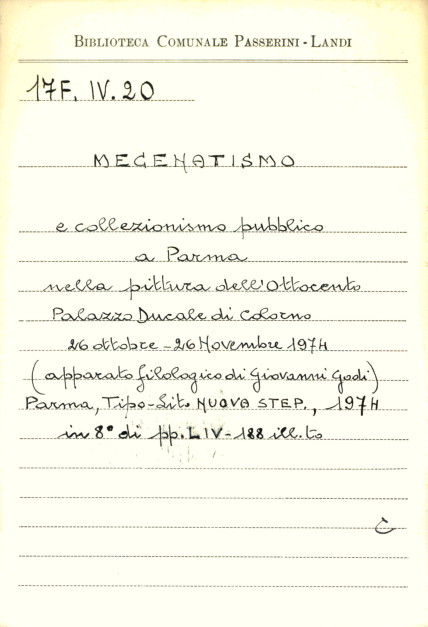 BIBLIOTECA COMUNALE PASSERINI-LANDI
17F. IV. 20
MECENATISMO
e collezionismo pubblico
a Parma
nella pittura dell'Ottocento
Palazzo Ducale di Colorno
26 ottobre - 26 Novembre 1974
(apparato filologico di Giovanni Godi)
Parma, Tipo-Lito NUOVA STEP., 1974
in 8° di pp. LIV-188 ill.to
C